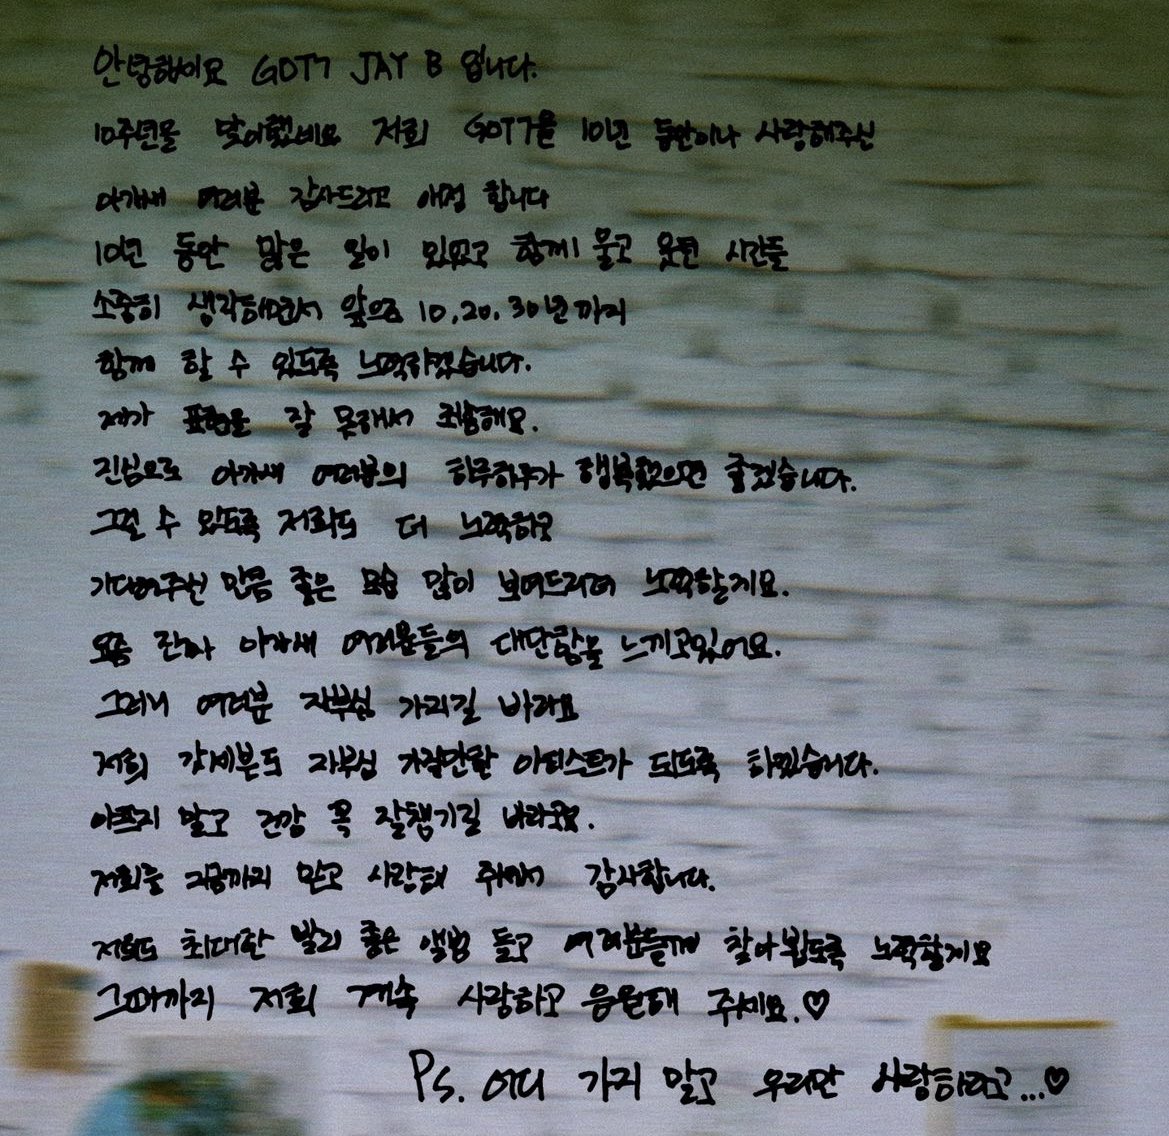 안녕하세요 GOT7 JAY B 입니다.
10주년을 맞이했네요 저희 GOT7을 10년 동안이나 사랑해주신
아가새 여러분 감사드리고 애정 합니다
10년 동안 많은 일이 있었고 함께 울고 웃던 시간들
소중히 생각하면서 앞으로 10, 20, 30년까지
함께 할 수 있도록 노력하겠습니다.
제가 표현을 잘 못해서 죄송해요.
진심으로 아가새 여러분의 하루하루가 행복했으면 좋겠습니다.
그럴 수 있도록 저희도 더 노력하고
기다려주신 만큼 좋은 모습 많이 보여드리려 노력할게요.
요즘 아가새 여러분들의 대단함을 느끼고있어요.
그러니 여러분 자부심 가지길 바라요
저희 갓세븐도 자부심 가질만한 아티스트가 되도록 하겠습니다.
아프지 말고 건강 꼭 잘챙기길 바라고요.
저희를 지금까지 믿고 사랑해 줘서 감사합니다.
저희도 최대한 빨리 좋은 앨범 들고 여러분들께 찾아뵙도록 노력할게요
그때까지 저희 계속 사랑하고 응원해 주세요.♡
Ps. 어디 가지 말고 우리만 사랑하라고...♡